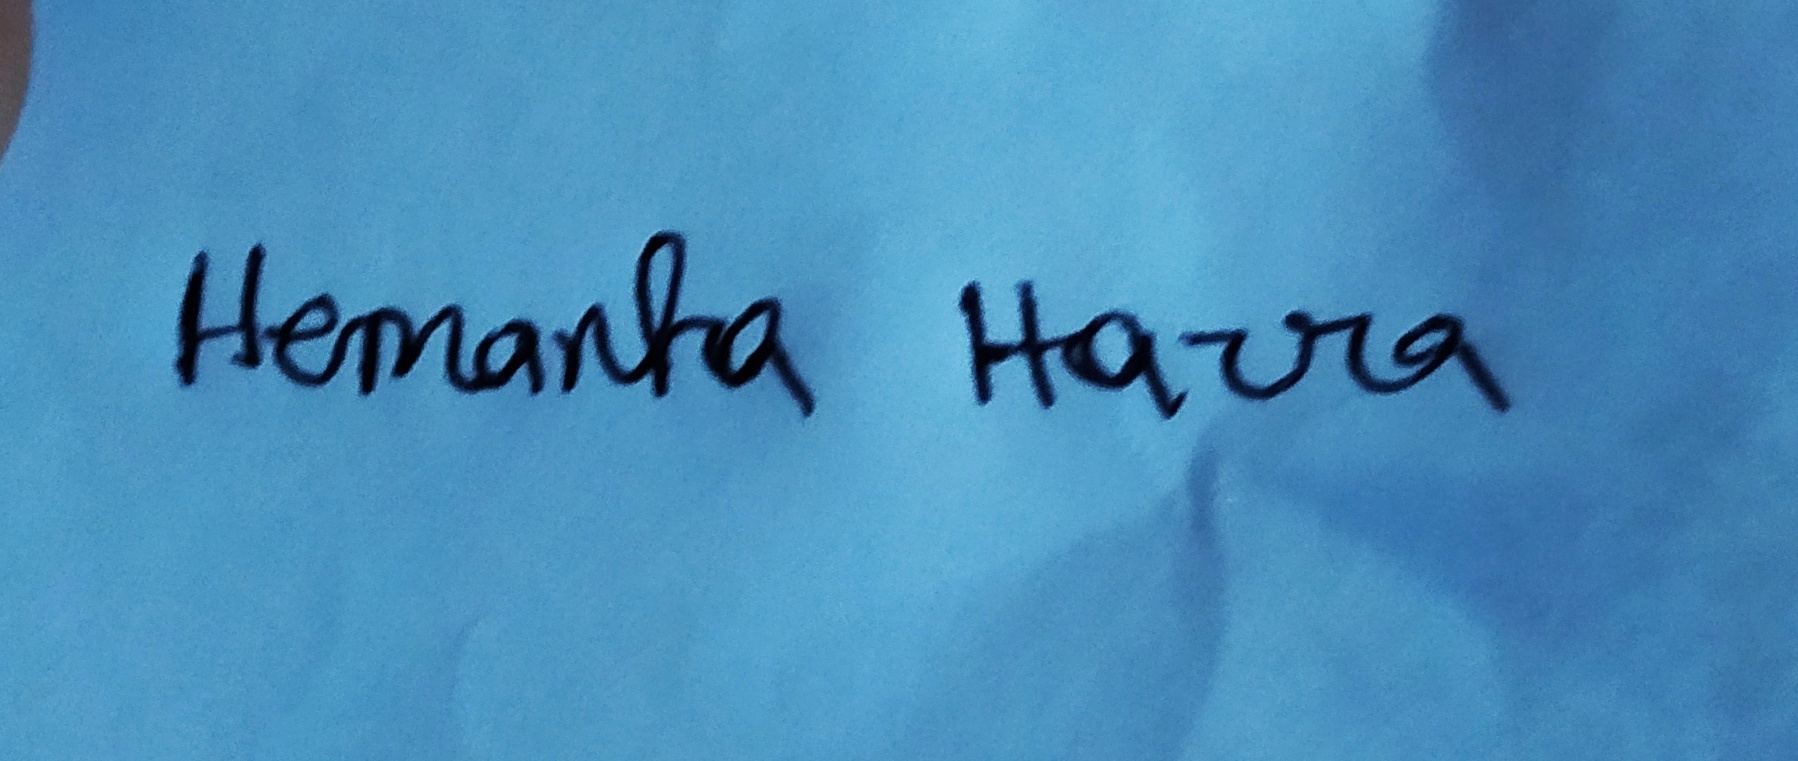 Hemanta Hazra